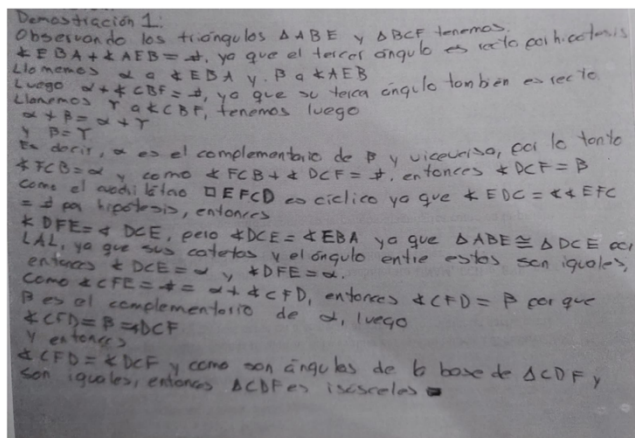 Demostración 1:
Observando los triángulos ΔABE y ΔBCF tenemos,
∢EBA+∢AEB=⦜, ya que el tercer ángulo es recto por hipotesis
Llamemos α a ∢EBA y β a ∢AEB
Luego α+∢CBF=⦜, ya que su terca ángulo tonbien es recto
Llanemos γ a ∢CBF, tenemos luego
α+β=α+γ
y β=γ
Es decir, α es el complementario de β y viceversa, por lo tanto
∢FCB=α y como ∢FCB+∢DCF=⦜, entonces ∢DCF=β
Como el □EFCD es cíclico ya que ∢EDC=∢∢EFC
=⦜ por hipotesis, entonces
∢DFE=∢DCE, pero ∢DCE=∢EBA ya que ΔABE≅ΔDCE por
LAL, ya que sus catetos y el ángulo entre estos son iguales,
entonces ∢DCE=α y ∢DFE=α.
Como ∢CFE=⦜=α+∢CFD, entonces ∢CFD=β por que
β es el complementario de α, luego
∢CFD=β=∢DCF
y entonces
∢CFD=∢DCF y como son ángulos de la base de ΔCDF y
son iguales, entonces ΔCDF es isósceles ■